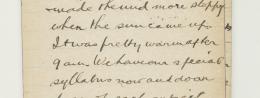 made the mud more sloppy
when the sun came up.
It was pretty warm after
9 a.m. We have our special
syllabus now and down